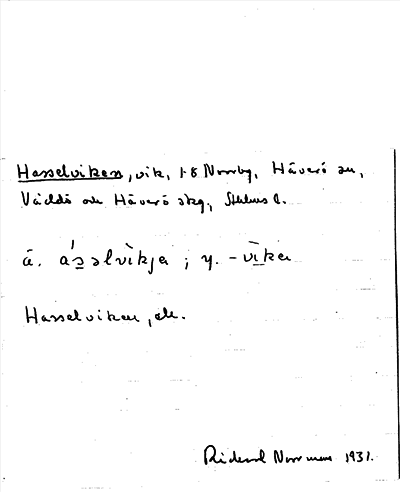 Hasselviken, vik, 1-8 Norrby, Häverö sn,
Väddö och Häverö skg, Sthlms l.
ä. ásəlvìkja ; y. -vìka
Hasselviken, ek.
Rickard Norrman 1931.